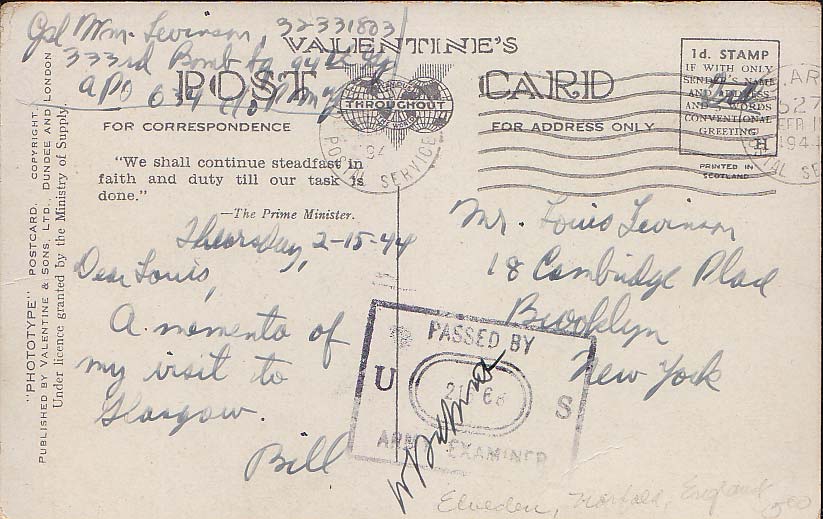 Cpl Wm. Levinson, 32331803
333rd Bomb Gp 94th
APO 634 c/o P.M. N.Y.
VALENTINE'S
POST CARD
THROUGHOUT
FOR CORRESPONDENCE
FOR ADDRESS ONLY
1d. STAMP
IF WITH ONLY
SENDER'S NAME
AND ADDRESS
AND WORDS
CONVENTIONAL
GREETING
H
PRINTED IN
SCOTLAND
POSTAL SERVICE
1944
"We shall continue steadfast in
faith and duty till our task is
done."
—The Prime Minister.
Thursday, 2-15-44
Dear Louis,
A momento of
my visit to
Glasgow.
Bill
Mr. Louis Levinson
18 Cambridge Place
Brooklyn
New York
PASSED BY
U S
ARMY EXAMINER
Elveden, Norfolk, England
"PHOTOTYPE" POSTCARD. COPYRIGHT.
PUBLISHED BY VALENTINE & SONS, LTD., DUNDEE AND LONDON
Under licence granted by the Ministry of Supply.